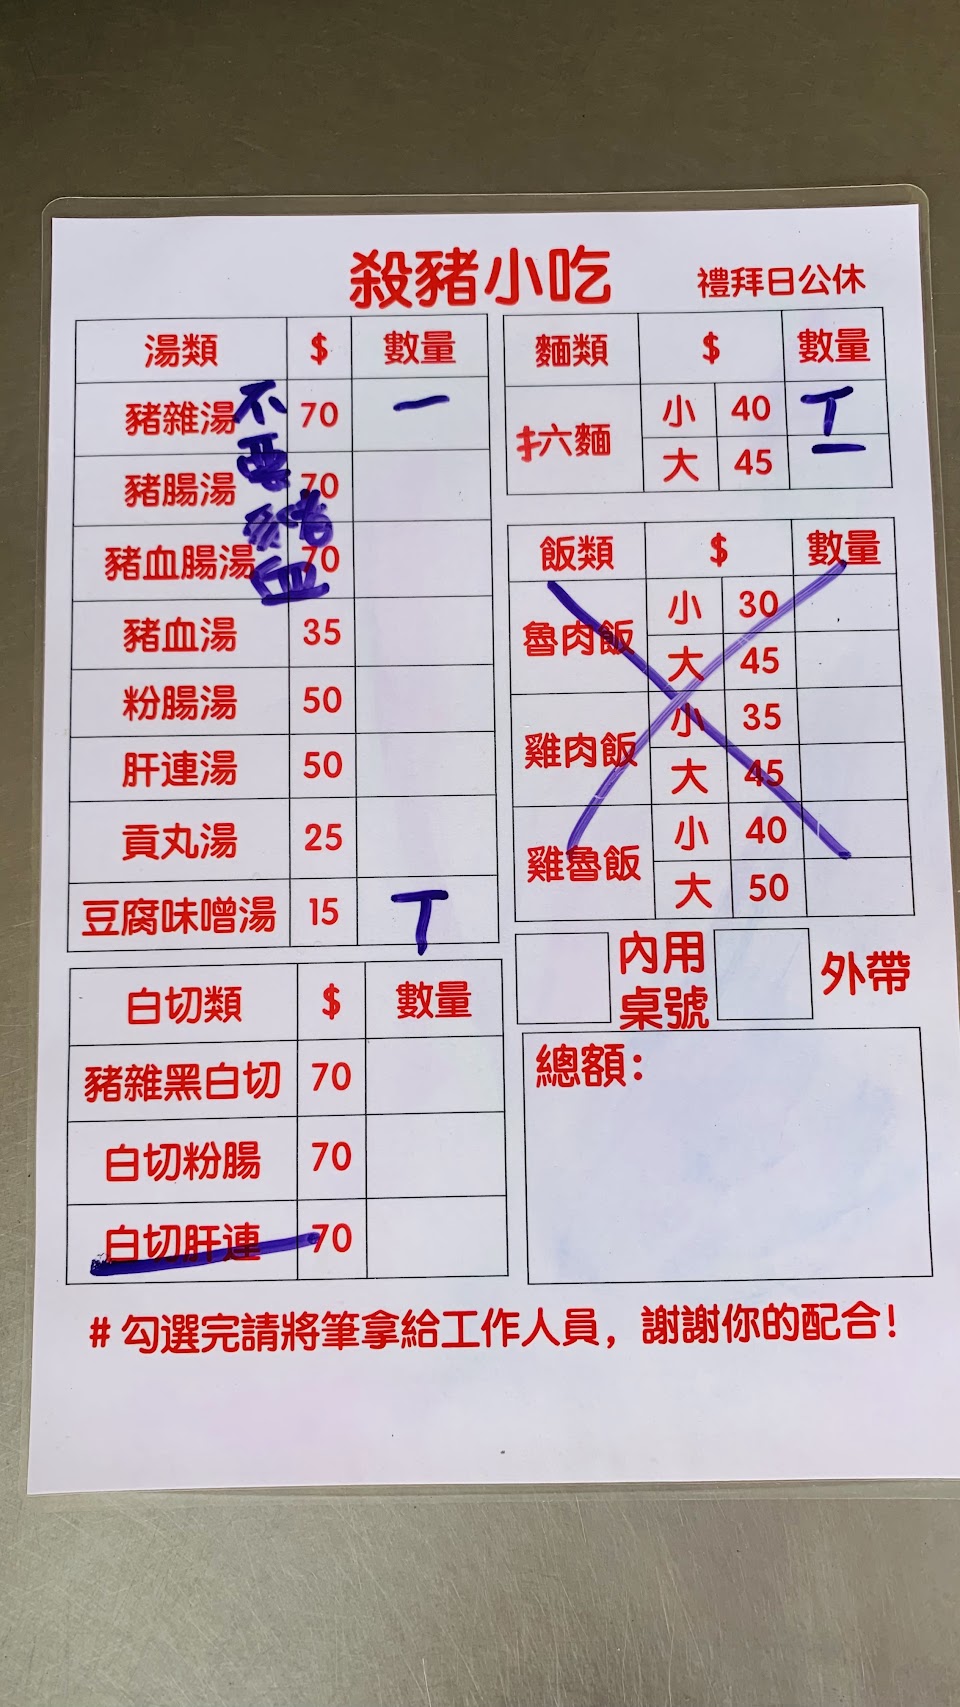 殺豬小吃 禮拜日公休
湯類 $ 數量
豬雜湯 70 一
不要豬血
豬腸湯 70
豬血腸湯 70
豬血湯 35
粉腸湯 50
肝連湯 50
貢丸湯 25
豆腐味噌湯 15 丅
白切類 $ 數量
豬雜黑白切 70
白切粉腸 70
白切肝連 70
麵類 $ 數量
六麵 小 40 丅
大 45 一
飯類 $ 數量
魯肉飯 小 30
大 45
雞肉飯 小 35
大 45
雞魯飯 小 40
大 50
內用
桌號
外帶
總額:
#勾選完請將筆拿給工作人員,謝謝你的配合!